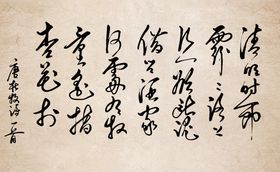 清明时节雨
纷纷路上
行人欲断魂
借问酒家
何处有牧
童遥指
杏花村
唐杜牧诗一首